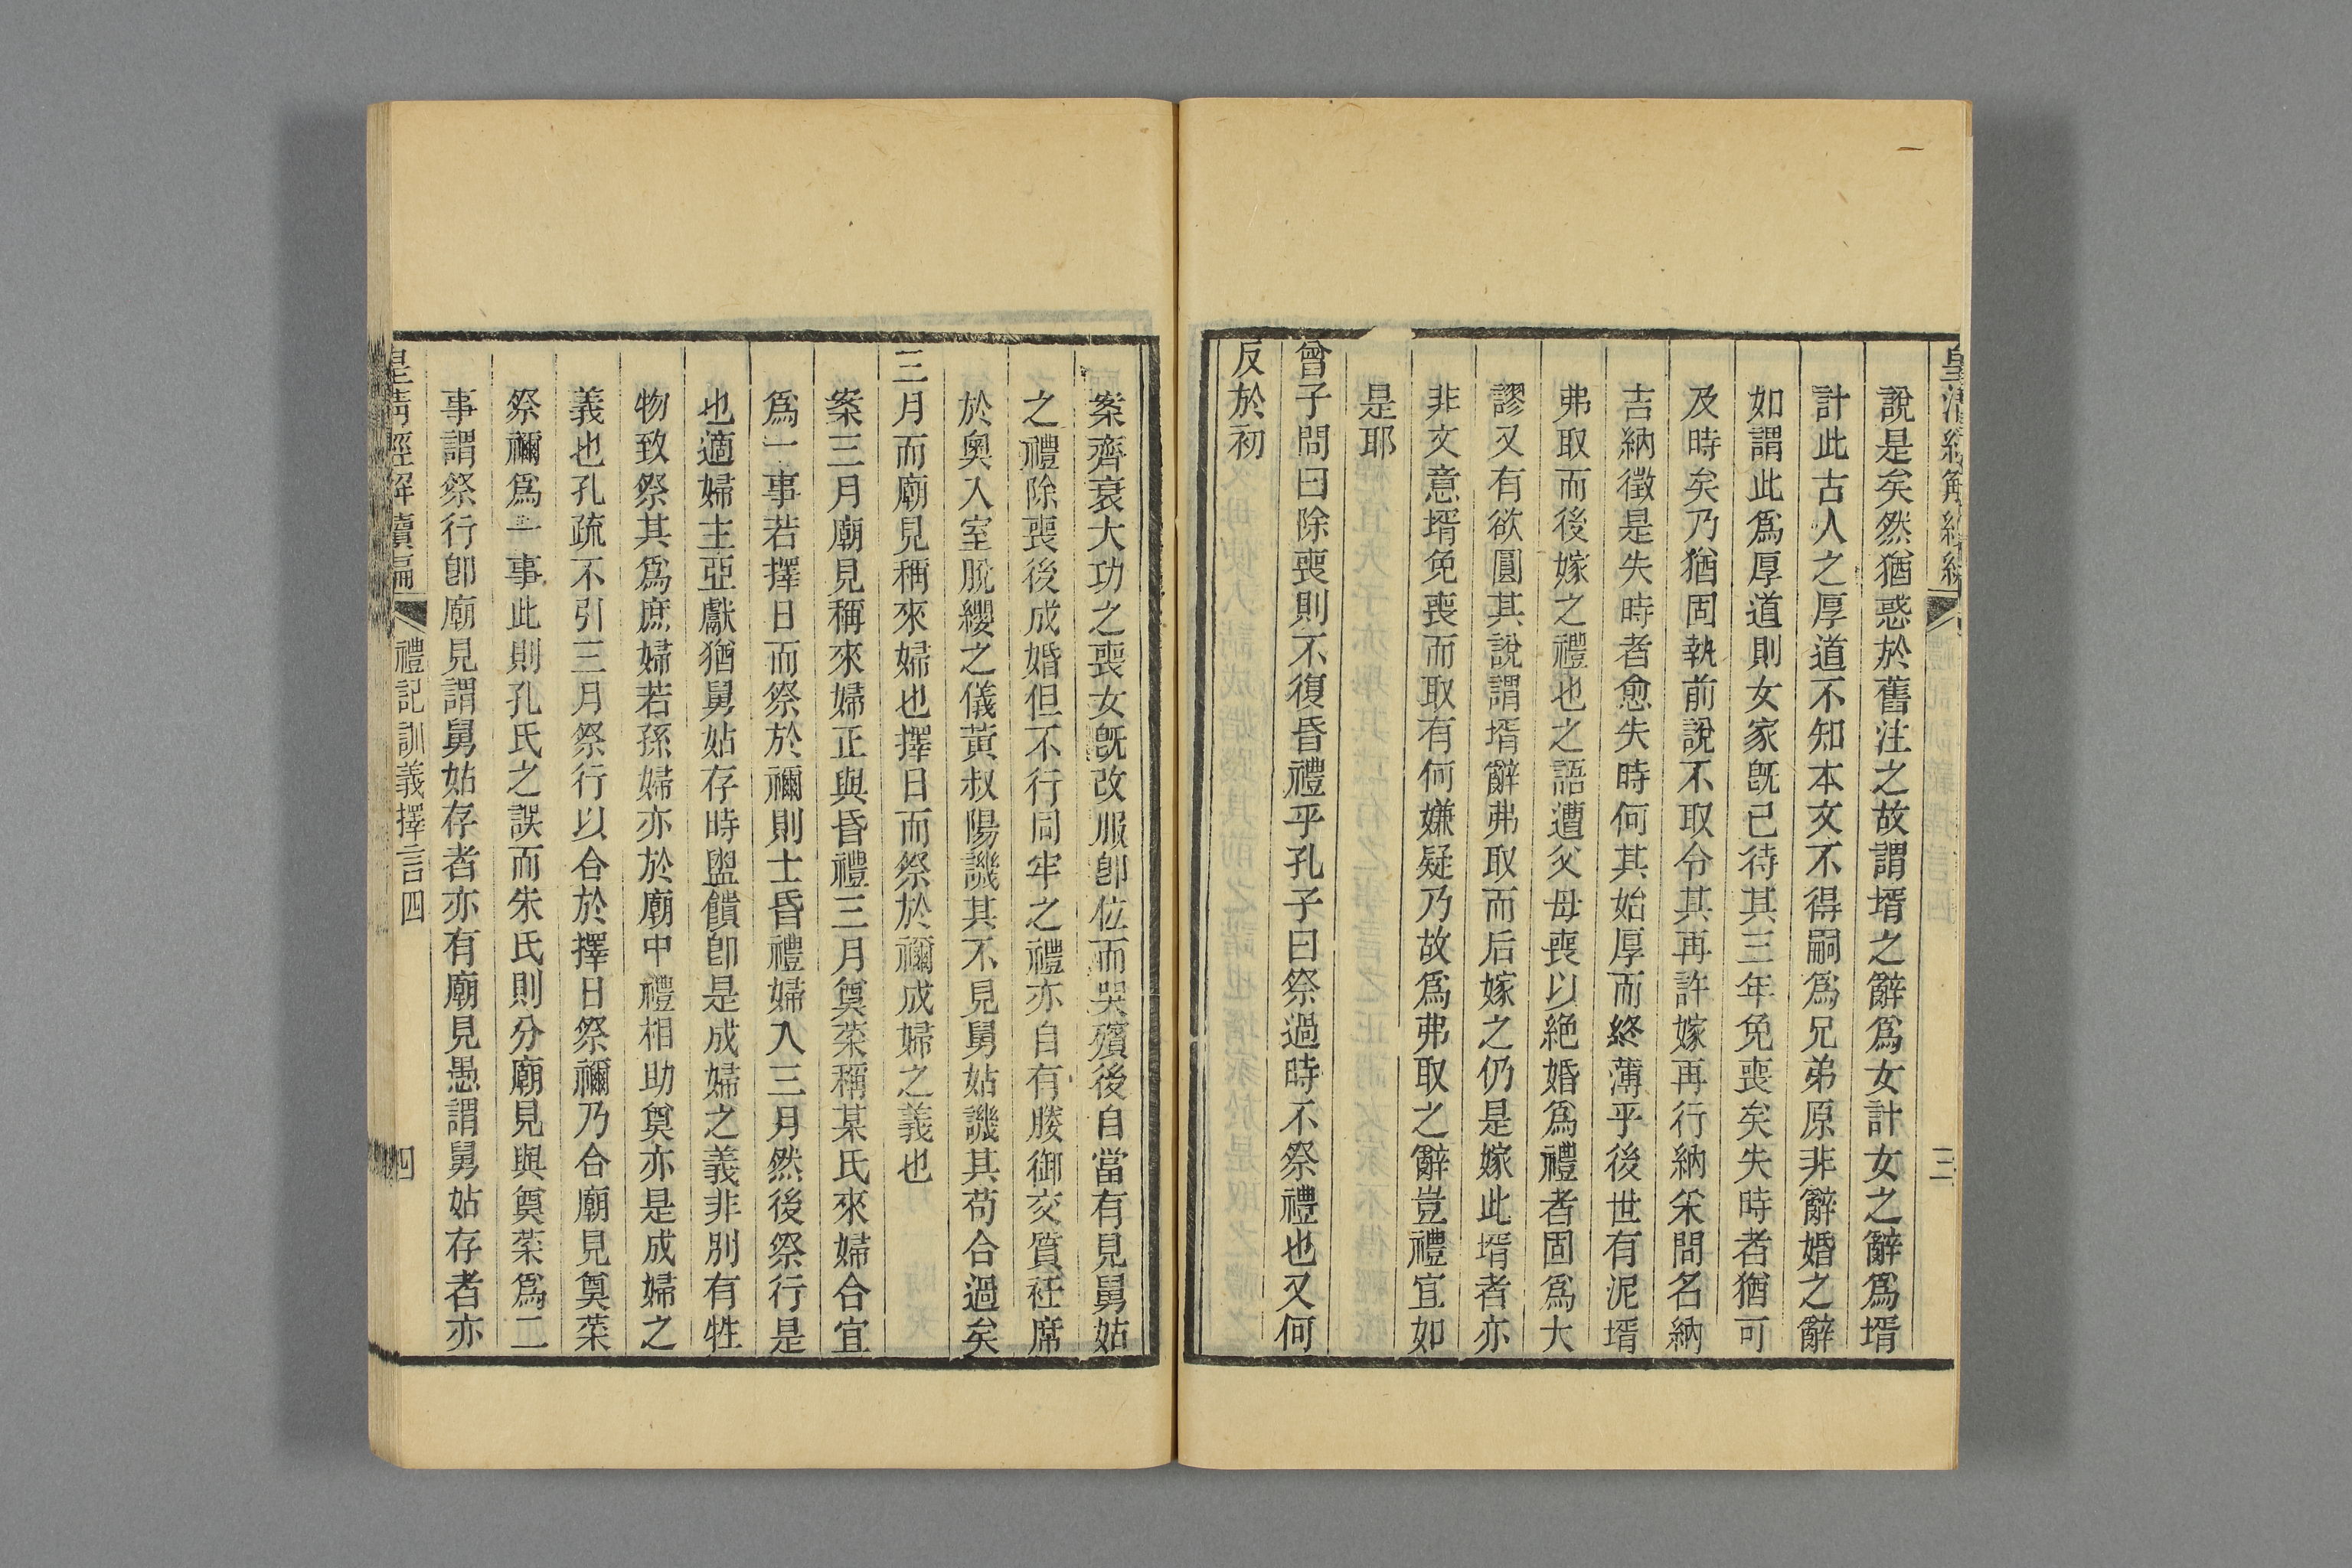 說是矣然猶惑於舊注之故謂壻之辭爲女計女之辭爲壻
計此古人之厚道不知本文不得嗣爲兄弟原非辭婚之辭
如謂此爲厚道則女家旣已待其三年免喪矣失時者猶可
及時矣乃猶固執前說不取令其再許嫁再行納采問名納
吉納徵是失時者愈失時何其始厚而終薄乎後世有泥壻
弗取而後嫁之禮也之語遭父母喪以絶婚爲禮者固爲大
謬又有欲圓其說謂壻辭弗取而后嫁之仍是嫁此壻者亦
非文意壻免喪而取有何嫌疑乃故爲弗取之辭豈禮宜如
是耶
曾子問曰除喪則不復昏禮乎孔子曰祭過時不祭禮也又何
反於初
案齊衰大功之喪女旣改服卽位而哭殯後自當有見舅姑
之禮除喪後成婚但不行同牢之禮亦自有媵御交質衽席
於奧入室脫纓之儀黃叔陽譏其不見舅姑譏其苟合過矣
三月而廟見稱來婦也擇日而祭於禰成婦之義也
案三月廟見稱來婦正與昏禮三月奠菜稱某氏來婦合宜
爲一事若擇日而祭於禰則士昏禮婦入三月然後祭行是
也適婦主亞獻猶舅姑存時盥饋卽是成婦之義非別有牲
物致祭其爲庶婦若孫婦亦於廟中禮相助奠亦是成婦之
義也孔疏不引三月祭行以合於擇日祭禰乃合廟見奠菜
祭禰爲一事此則孔氏之誤而朱氏則分廟見與奠菜爲二
事謂祭行卽廟見謂舅姑存者亦有廟見愚謂舅姑存者亦
皇淸經解續編
禮記訓義擇言四
四